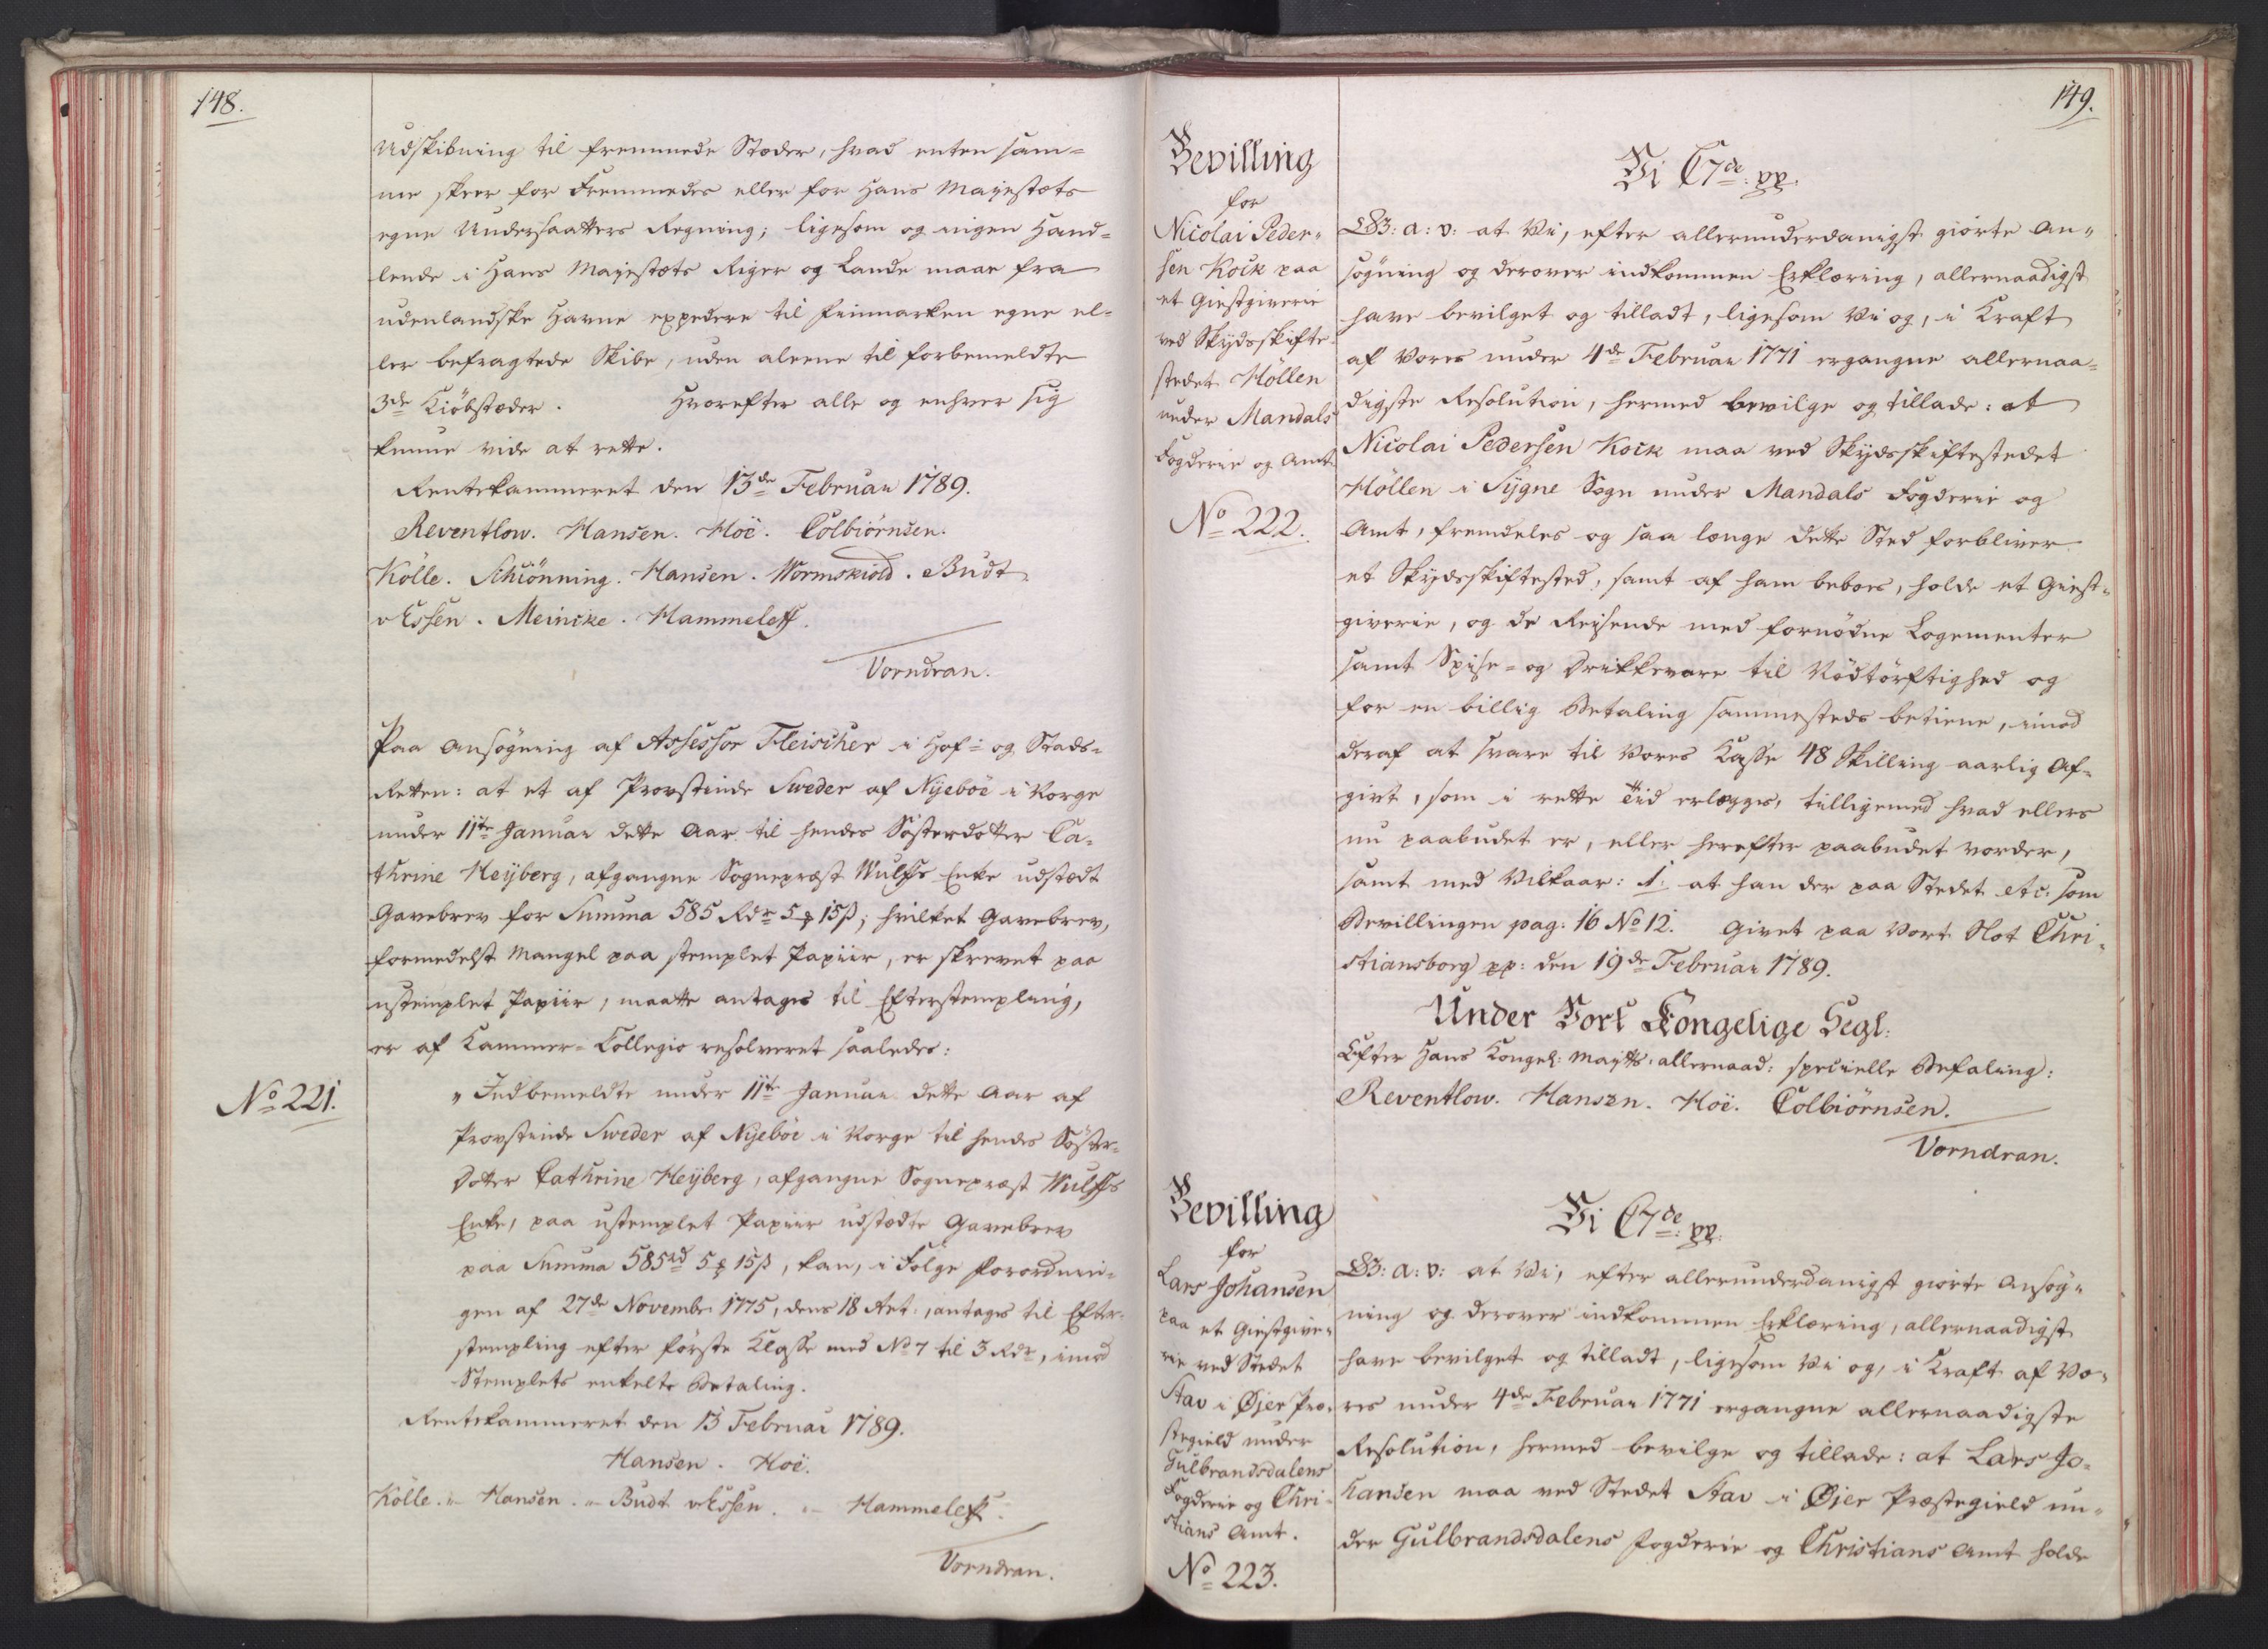 148.
Udskibning til fremmede Stæder, hvad enten sam=
me skeer for Fremmedes eller for Hans Mayestæts
egne Undersaatters Regning; ligesom og ingen Hand=
lende i Hans Mayestæts Riger og Lande maae fra
udenlandske Havne expedere til Finmarken egne el=
ler befragtede Skibe, uden aleene til forbemeldte
3de Kiöbstæder. Hvorefter alle og enhver sig
kunne vide at rette.
Rentekammeret den 13de Februar 1789.
Reventlow. Hansen. Hoë. Colbiörnsen.
Kölle. Schiönning. Hansen. Wormskiold. Budtz
v Essen. Meincke. Hammeleff.
Vorndran.
Paa Ansøgning af Assessor Fleischer i Hof= og Stads=
Retten: at et af Provstinde Sweder af Nÿeböe i Norge
under 11te Januar dette Aar til hendes Søsterdotter Ca=
thrine Heÿberg, afgangne Sognepræst Wulffs Enke udstædt
Gavebrev for Summa 585 Rdr 5 ꝑ 15 ß; hvilket Gavebrev,
formedelst Mangel paa stemplet Papiir, er skrevet paa
ustemplet Papiir, maatte antages til Efterstempling,
er af Kammer=Collegio resolveret saaledes:
No 221.
„Indbemeldte under 11te Januar dette Aar af
Provstinde Sweder af Nÿeböe i Norge til hendes Söster=
dotter Cathrine Heÿberg, afgangne Sognepræst Wulffs
Enke, paa ustemplet Papiir udstædte Gavebrev
paa Summa 585 rd 5 ꝑ 15 ß, kan, i Følge Forordnin=
gen af 27de Novembr 1775, dens 18 Art:, antages til Efter=
stempling efter første Classe med No 7 til 3 Rdr, imod
Stemplets enkelte Betaling.
Rentekammeret den 13 Februar 1789.
Hansen. Hoë.
Kölle. „ Hansen. „ Budtz v Essen. „ Hammeleff.
Vorndran.
149.
Bevilling
for
Nicolai Peder=
sen Kock paa
et Giestgiverie
ved Skÿdsskifte=
stedet Höllen
under Mandals
Fogderie og Amt.
No 222.
Vi C7de pp.
GB: A: V: at Vi, efter allerunderdanigst giorte An=
søgning og derover indkommen Erklæring, allernaadigst
have bevilget og tilladt, ligesom Vi og, i Kraft
af Vores under 4de Februar 1771 ergangne allernaa=
digste Resolution, hermed bevilge og tillade: at
Nicolai Pedersen Kock maa ved Skÿdsskiftestedet
Höllen i Sÿgne Sogn under Mandals Fogderie og
Amt, fremdeles og saa længe dette Sted forbliver
et Skÿdsskiftested, samt af ham beboes, holde et Giest=
giverie, og de Reÿsende med fornødne Logementer
samt Spise= og Drikkevare til Nödtörftighed og
for en billig Betaling sammesteds betiene, imod
deraf at svare til Vores Casse 48 Skilling aarlig Af=
givt, som i rette Tiid erlægges, tilligemed hvad ellers
nu paabudet er, eller herefter paabudet vorder,
samt med Vilkaar: 1: at han der paa Stedet etc. som
Bevillingen pag: 16 No 12. Givet paa Vort Slot Chri=
stiansborg pp: den 19de Februar 1789.
Under Vort Kongelige Segl.
Efter Hans Kongel: Maytts: allernaad: specielle Befaling:
Reventlow. Hansen. Hoë. Colbiörnsen.
Vorndran.
Bevilling
for
Lars Johansen
paa et Giestgive=
rie ved Stedet
Stav i Øjer Præ=
stegield under
Gulbrandsdalens
Fogderie og Chri=
stians Amt.
No 223.
Vi C7de pp.
GB: A: V: at Vi, efter allerunderdanigst giorte Ansög=
ning og derover indkommen Erklæring, allernaadigst
have bevilget og tilladt, ligesom Vi og, i Kraft af Vo=
res under 4de Februar 1771 ergangne allernaadigste
Resolution, hermed bevilge og tillade: at Lars Jo=
hansen maa ved Stedet Stav i Øjer Præstegield un=
der Gulbrandsdalens Fogderie og Christians Amt holde